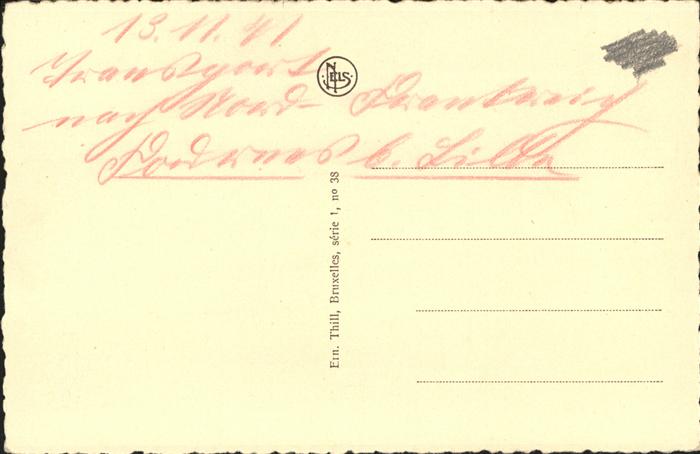 13.11.41
Transport
nach Nord-Frankreich
b. Lille
NELS
Ern. Thill, Bruxelles, série 1, no 38